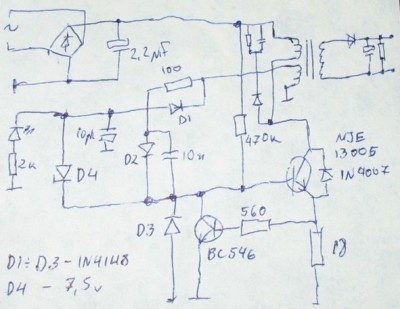 2,2MF
100
D1
10μ
2к
D4
D2
10н
470к
NJE
13005
1N4007
D3
560
BC546
D1÷D3-1N4148
D4 - 7,5v